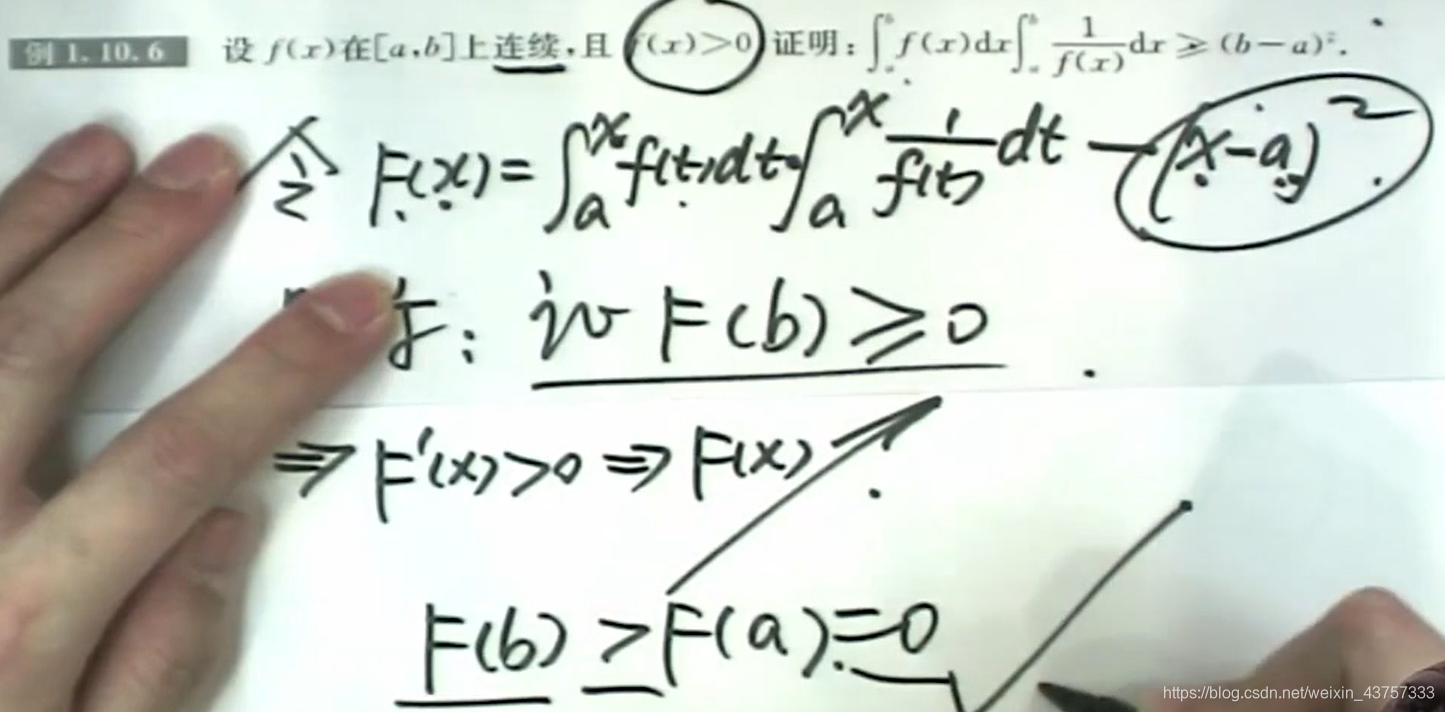 例 1.10.6 设 f(x)在[a,b]上连续,且 f(x)>0 证明:∫_a^b f(x)dx∫_a^b 1/f(x) dx ≥ (b-a)².
令 F(x)=∫_a^x f(t)dt·∫_a^x 1/f(t) dt-(x-a)²
: 证 F(b)≥0
⇒ F'(x)>0 ⇒ F(x) ↗
F(b) > F(a)=0
https://blog.csdn.net/weixin_43757333